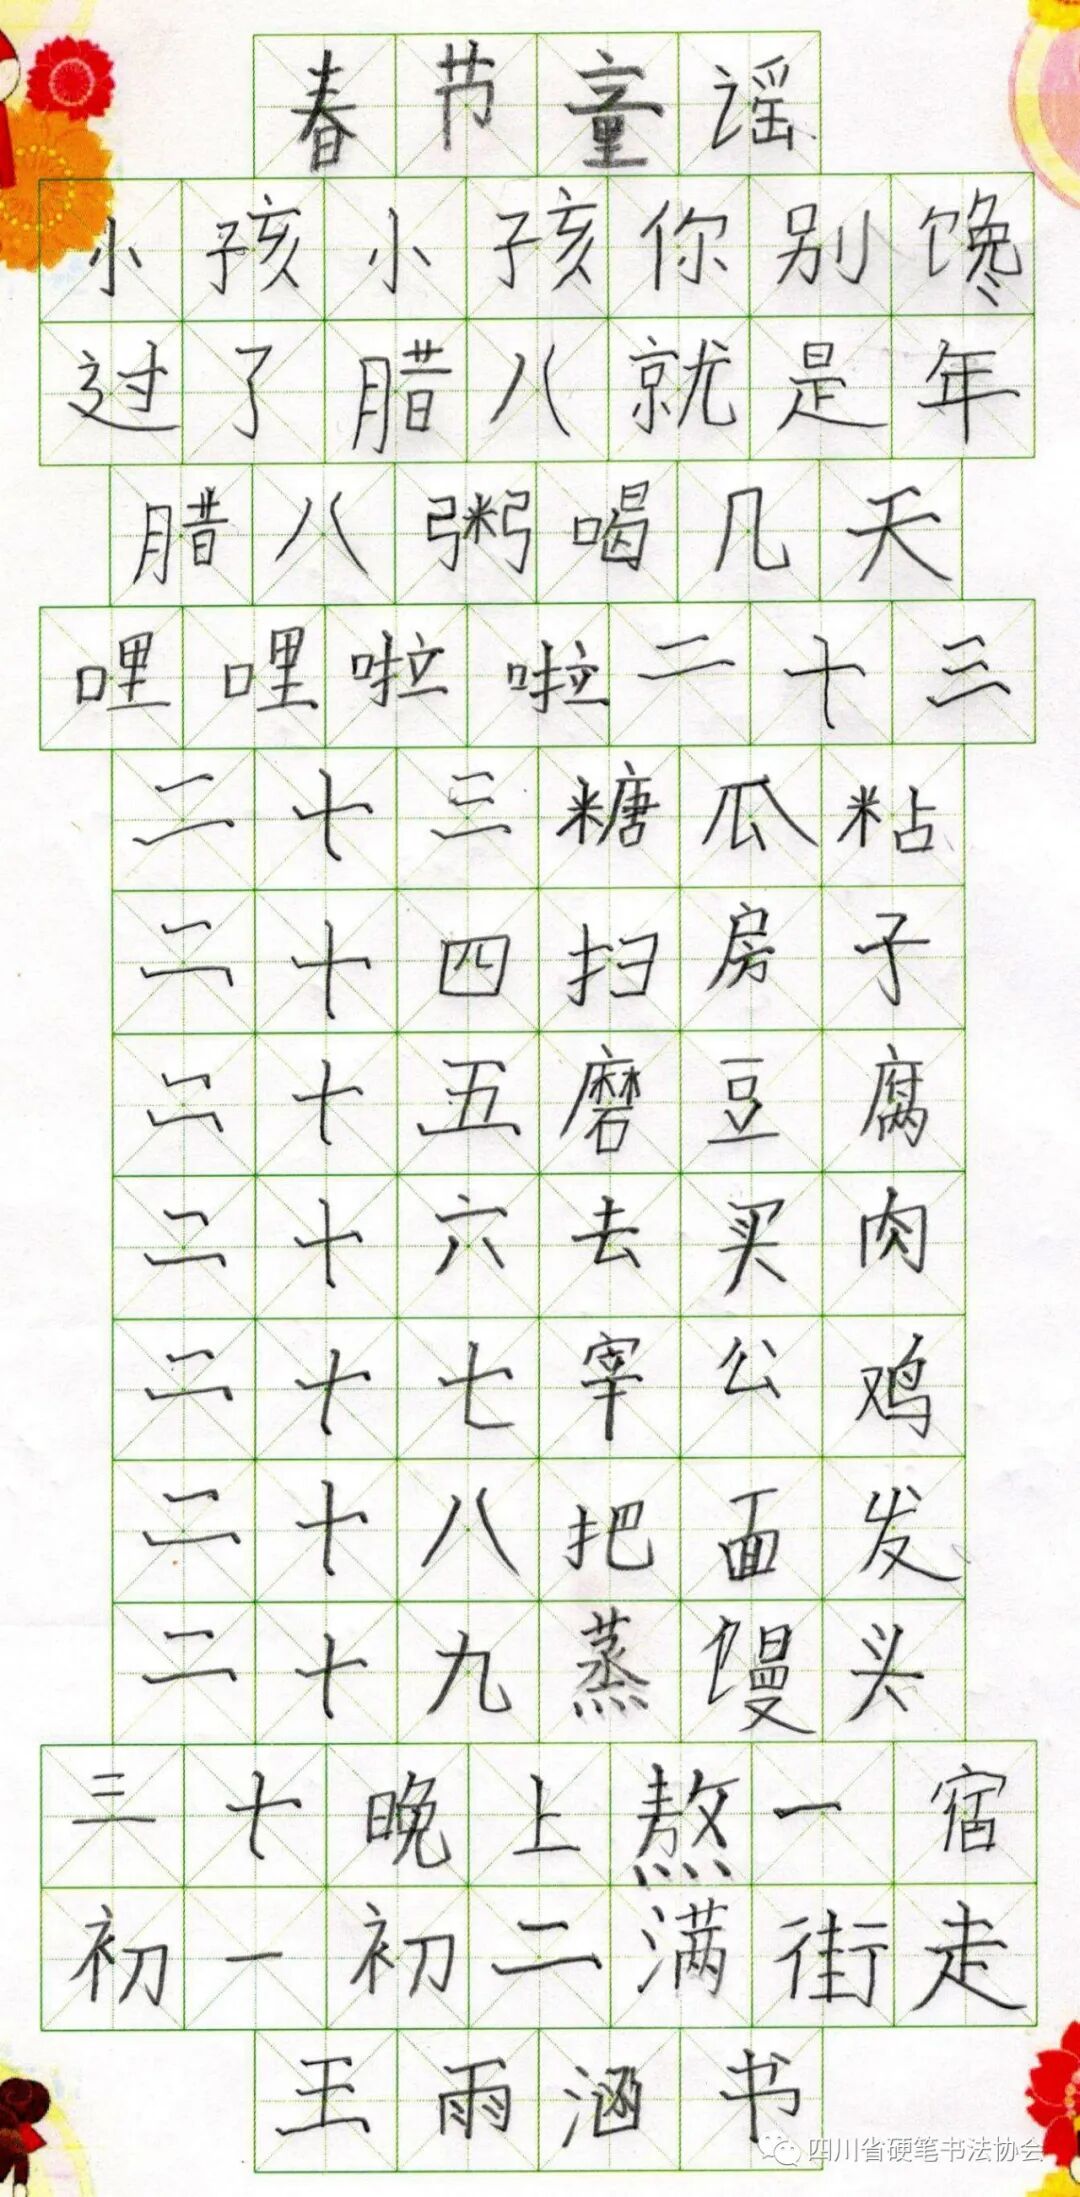 春节童谣
小孩小孩你别馋
过了腊八就是年
腊八粥喝几天
哩哩啦啦二十三
二十三糖瓜粘
二十四扫房子
二十五磨豆腐
二十六去买肉
二十七宰公鸡
二十八把面发
二十九蒸馒头
三十晚上熬一宿
初一初二满街走
王雨涵书
四川省硬笔书法协会